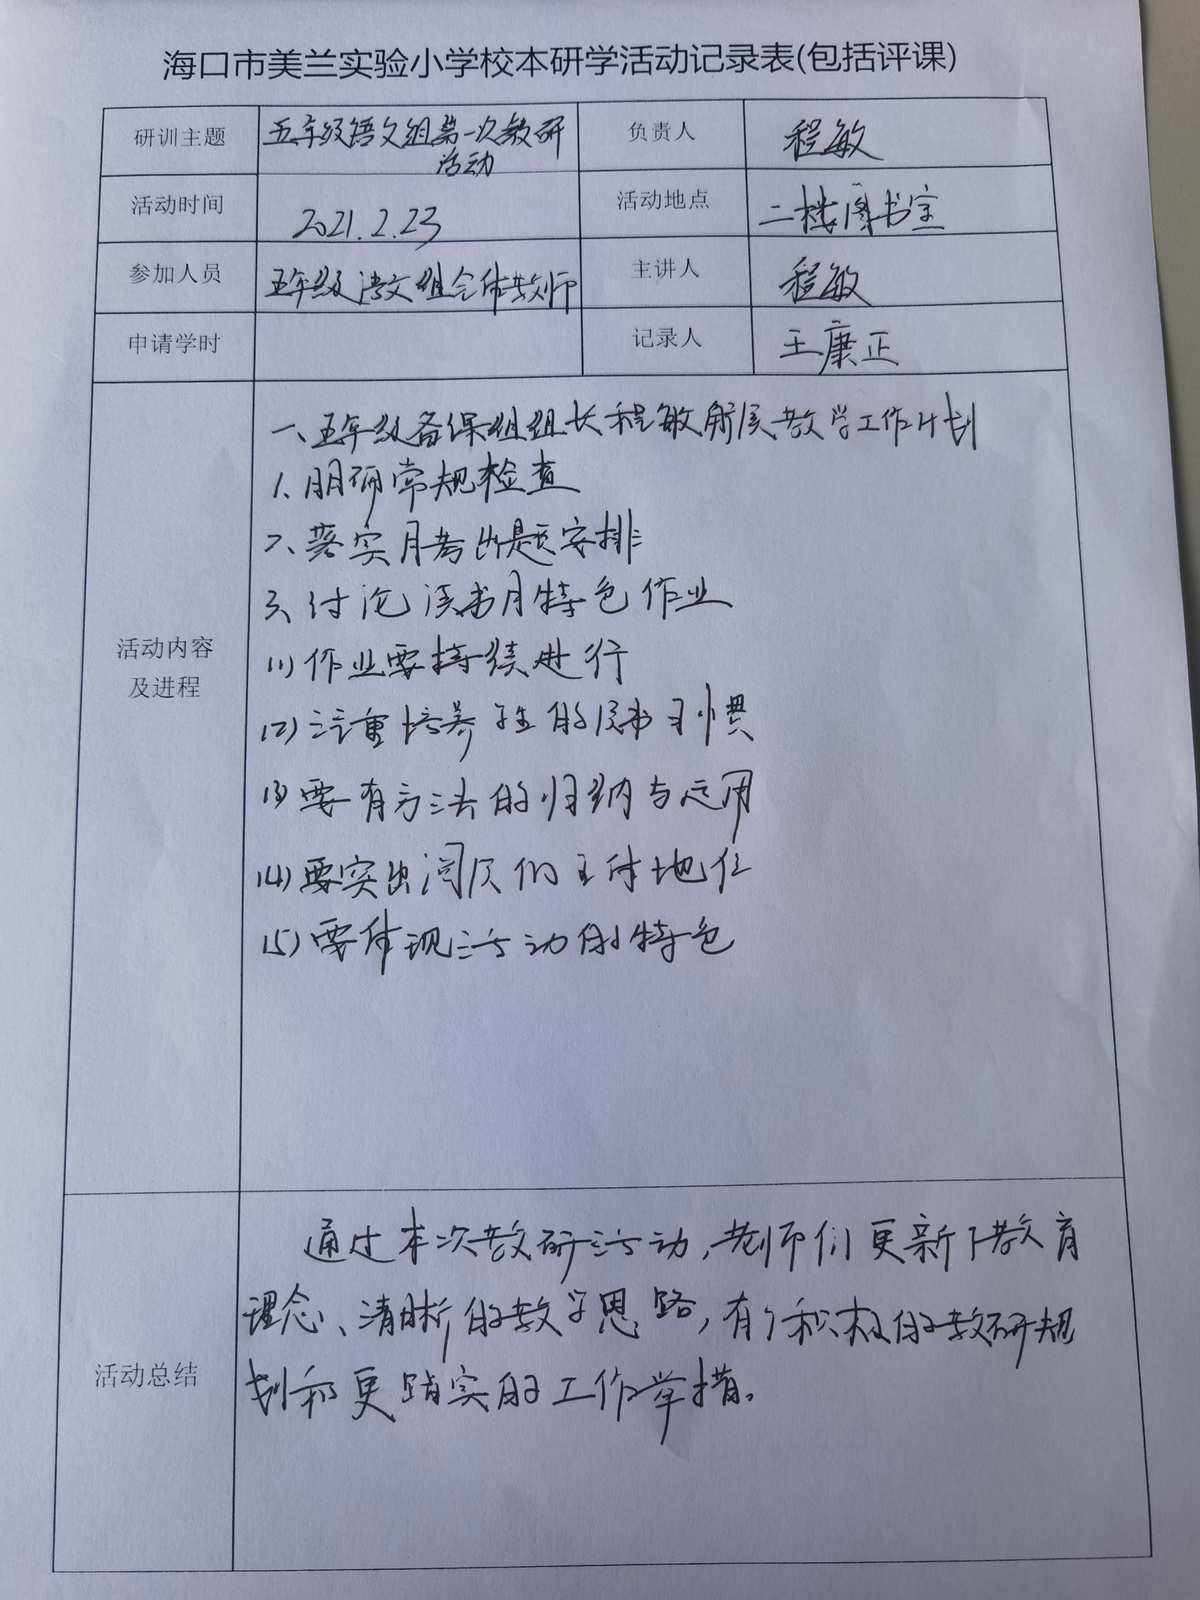 海口市美兰实验小学校本研学活动记录表(包括评课)
研训主题 五年级语文组第一次教研 负责人 程敏
活动
活动时间 2021.2.23 活动地点 二楼图书室
参加人员 五年级语文组全体教师 主讲人 程敏
申请学时 记录人 王康正
一、五年级备课组组长程敏解展教学工作计划
1、明确常规检查
2、落实月考出题安排
3、讨论读书月特色作业
(1)作业要持续进行
(2)注重培养学生的读书习惯
(3)要有方法的归纳与运用
活动内容
及进程
(4)要突出阅读的主体地位
(5)要体现活动的特色
通过本次教研活动,老师们更新了教育
理念、清晰的教学思路,有了积极的教研规
活动总结
划和更踏实的工作举措。